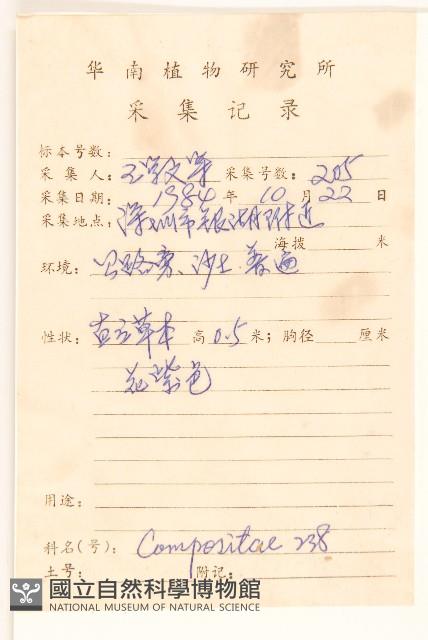 华南植物研究所
采集记录
标本号数:
采集人: 王学文等 采集号数: 205
采集日期: 1984 年 10 月 22 日
采集地点: 深圳市银湖附近
海拨 米
环境: 公路旁、沙土、普遍
性状: 直立草本 高 0.5 米; 胸径 厘米
花紫色
用途:
科名(号): Compositae 238
土号: 附记:
國立自然科學博物館
NATIONAL MUSEUM OF NATURAL SCIENCE